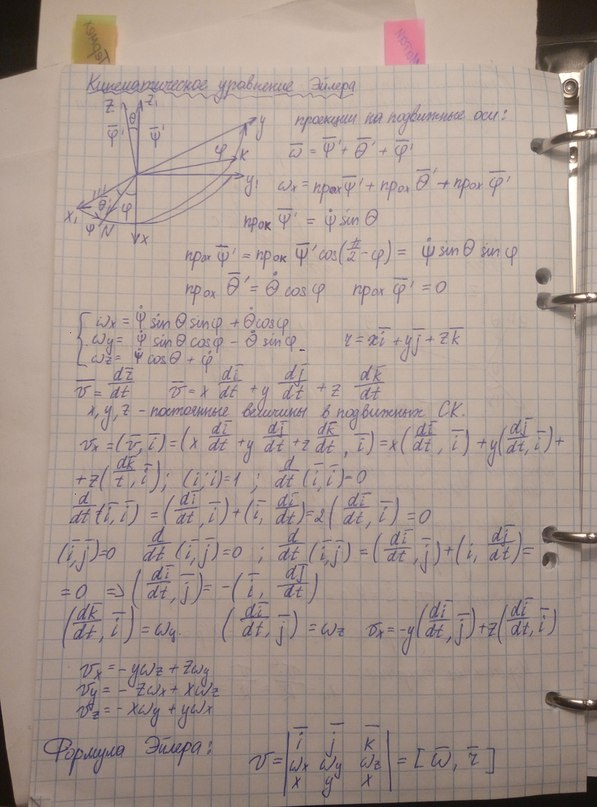 Термех
Кинематическое уравнение Эйлера
z z₁ θ ψ̄' φ̄' y
φ K y₁
x₁ θ̄' φ ψ N x
проекции на подвижные оси:
ω̄ = ψ̄' + θ̄' + φ̄'
ωx = прox ψ̄' + прox θ̄' + прox φ̄'
прok ψ̄' = ψ̇ sin θ
прox ψ̄' = прok ψ̄' cos(π/2 - φ) = ψ̇ sin θ sin φ
прox θ̄' = θ̇ cos φ прox φ̄' = 0
ωx = ψ̇ sin θ sin φ + θ̇ cos φ
ωy = ψ̇ sin θ cos φ - θ̇ sin φ r = xī + yj̄ + zk̄
ωz = ψ̇ cos θ + φ̇
v̄ = dr̄/dt v̄ = x dī/dt + y dj̄/dt + z dk̄/dt
x, y, z - постоянные величины в подвижных СК.
vx = (v̄, ī) = (x dī/dt + y dj̄/dt + z dk̄/dt, ī) = x(dī/dt, ī) + y(dj̄/dt, ī) +
+ z(dk̄/t, ī); (i; i) = 1; d/dt (ī, ī) = 0
d/dt (ī, ī) = (dī/dt, ī) + (ī, dī/dt) = 2(dī/dt, ī) = 0
(ī, j̄) = 0 d/dt (ī, j̄) = 0 ; d/dt (ī, j̄) = (dī/dt, j̄) + (i, dj̄/dt) =
= 0 => (dī/dt, j̄) = -(ī, dj̄/dt)
(dk̄/dt, ī) = ωy. (dī/dt, j̄) = ωz vx = -y(dī/dt, j̄) + z(dī/dt, ī)
vx = -yωz + zωy
vy = -zωx + xωz
vz = -xωy + yωx
Формула Эйлера: v̄ = | ī j̄ k̄
ωx ωy ωz | = [ω̄, r̄]
x y x